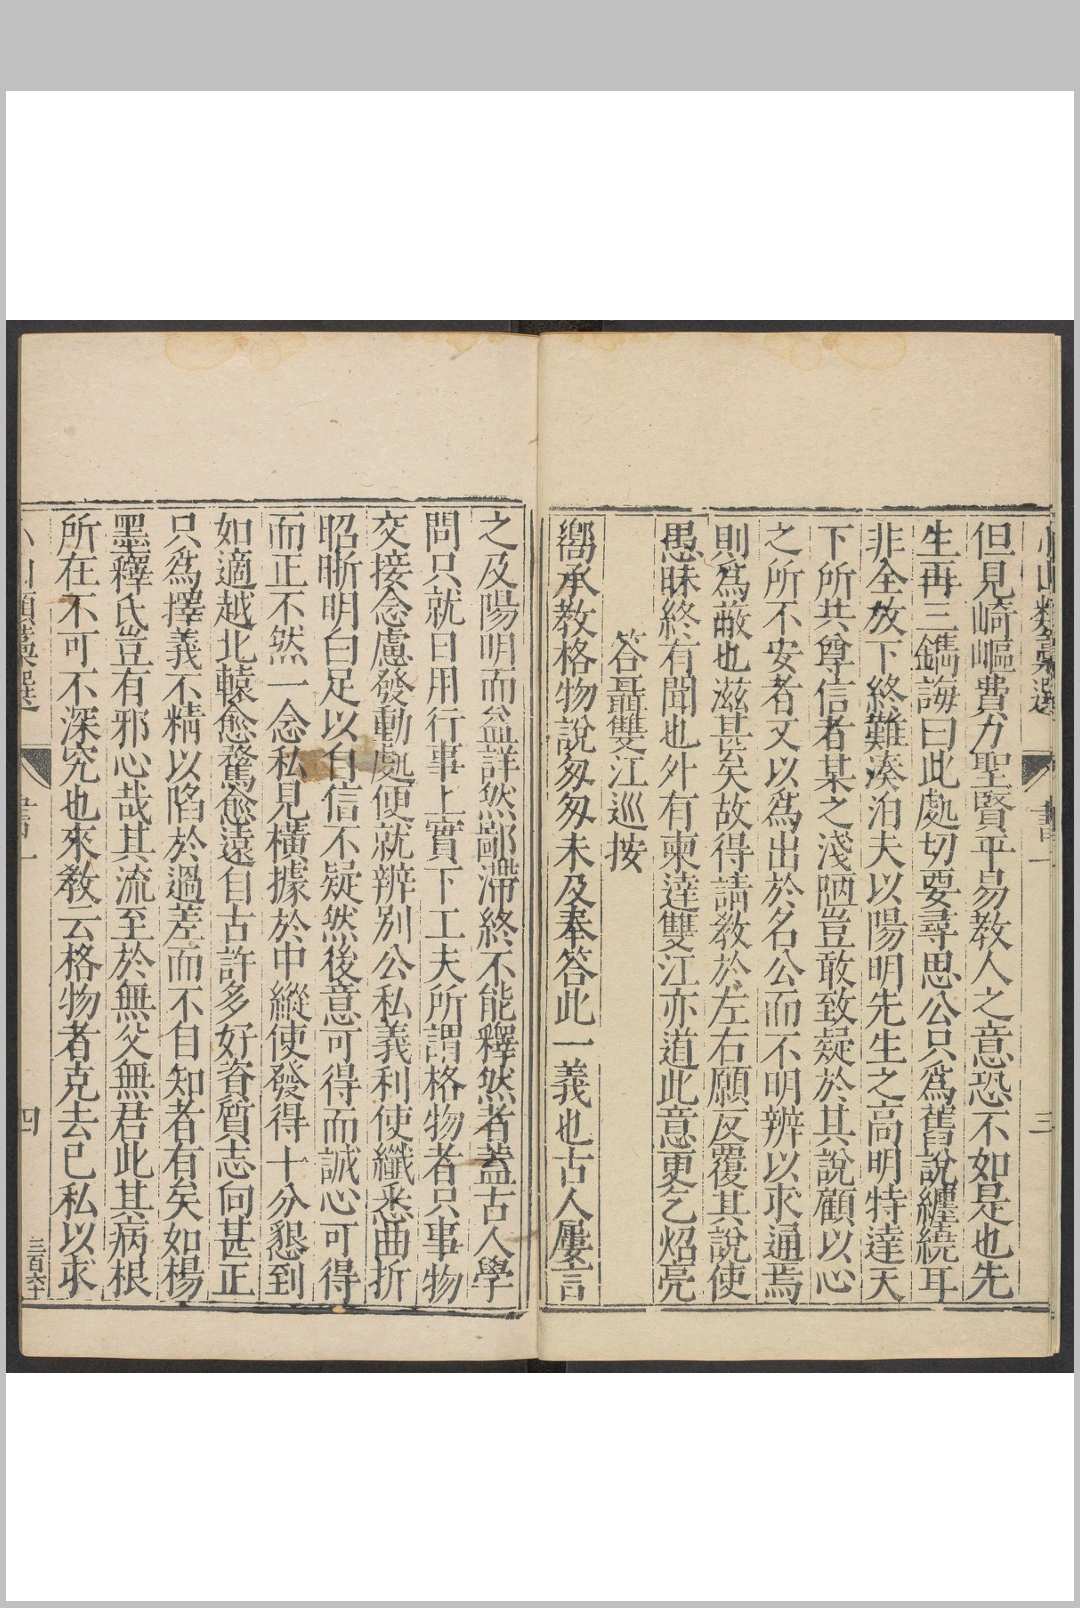 小山類藁選
書一
三
但見崎嶇費力聖賢平易教人之意恐不如是也先
生再三鐫誨曰此處切要尋思公只爲舊說纏繞耳
非全放下終難湊泊夫以陽明先生之高明特達天
下所共尊信者某之淺陋豈敢致疑於其說顧以心
之所不安者又以爲出於名公而不明辨以求通焉
則爲蔽也滋甚矣故得請教於左右願反覆其說使
愚昧終有聞也外有柬達雙江亦道此意更乞炤亮
答聶雙江巡按
嚮承教格物說匆匆未及奉答此一義也古人屢言
之及陽明而益詳然鄙滯終不能釋然者蓋古人學
問只就日用行事上實下工夫所謂格物者只事物
交接念慮發動處便就辨別公私義利使纖悉曲折
昭晣明白足以自信不疑然後意可得而誠心可得
而正不然一念私見橫據於中縱使發得十分懇到
如適越北轅愈騖愈遠自古許多好資質志向甚正
只爲擇義不精以陷於過差而不自知者有矣如楊
墨釋氏豈有邪心哉其流至於無父無君此其病根
所在不可不深究也來教云格物者克去己私以求
小山類藁選
書一
四
三百六十